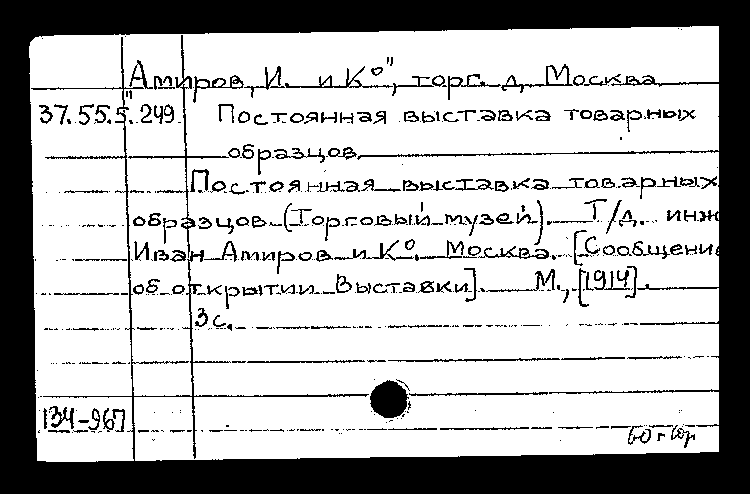 "Амиров, И. и К°", торг. д. Москва.
37.55.5.249. Постоянная выставка товарных
образцов.
Постоянная выставка товарных
образцов. (Торговый музей). Т/д. инж
Иван Амиров и К°. Москва. [Сообщение
об открытии Выставки]. М., [1914].
3с.
134-967